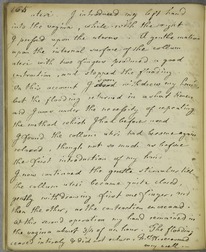 uteri I introduced my left hand
into the vagina, while with the right
I pressed upon the uterus. A gentle motion
upon the internal surface of the collum
uteri with two fingers produced a good
contraction, and stopped the flooding.
On this account I withdrew my hand
but the flooding returned in words time,
and I was under the necessity of repeating
the method which I had before used
I found the collum uteri had become again
relaxed though not so much as before
the first introduction of my hand
I now continued the gentle stimulus till
the collum uteri became quite closed,
gently withdrawing first one finger and
then the other, as the contraction increased.
At this second operation my hand remained in
the vagina about 3/4 of an hour. The flooding
ceased entirely & did not return.